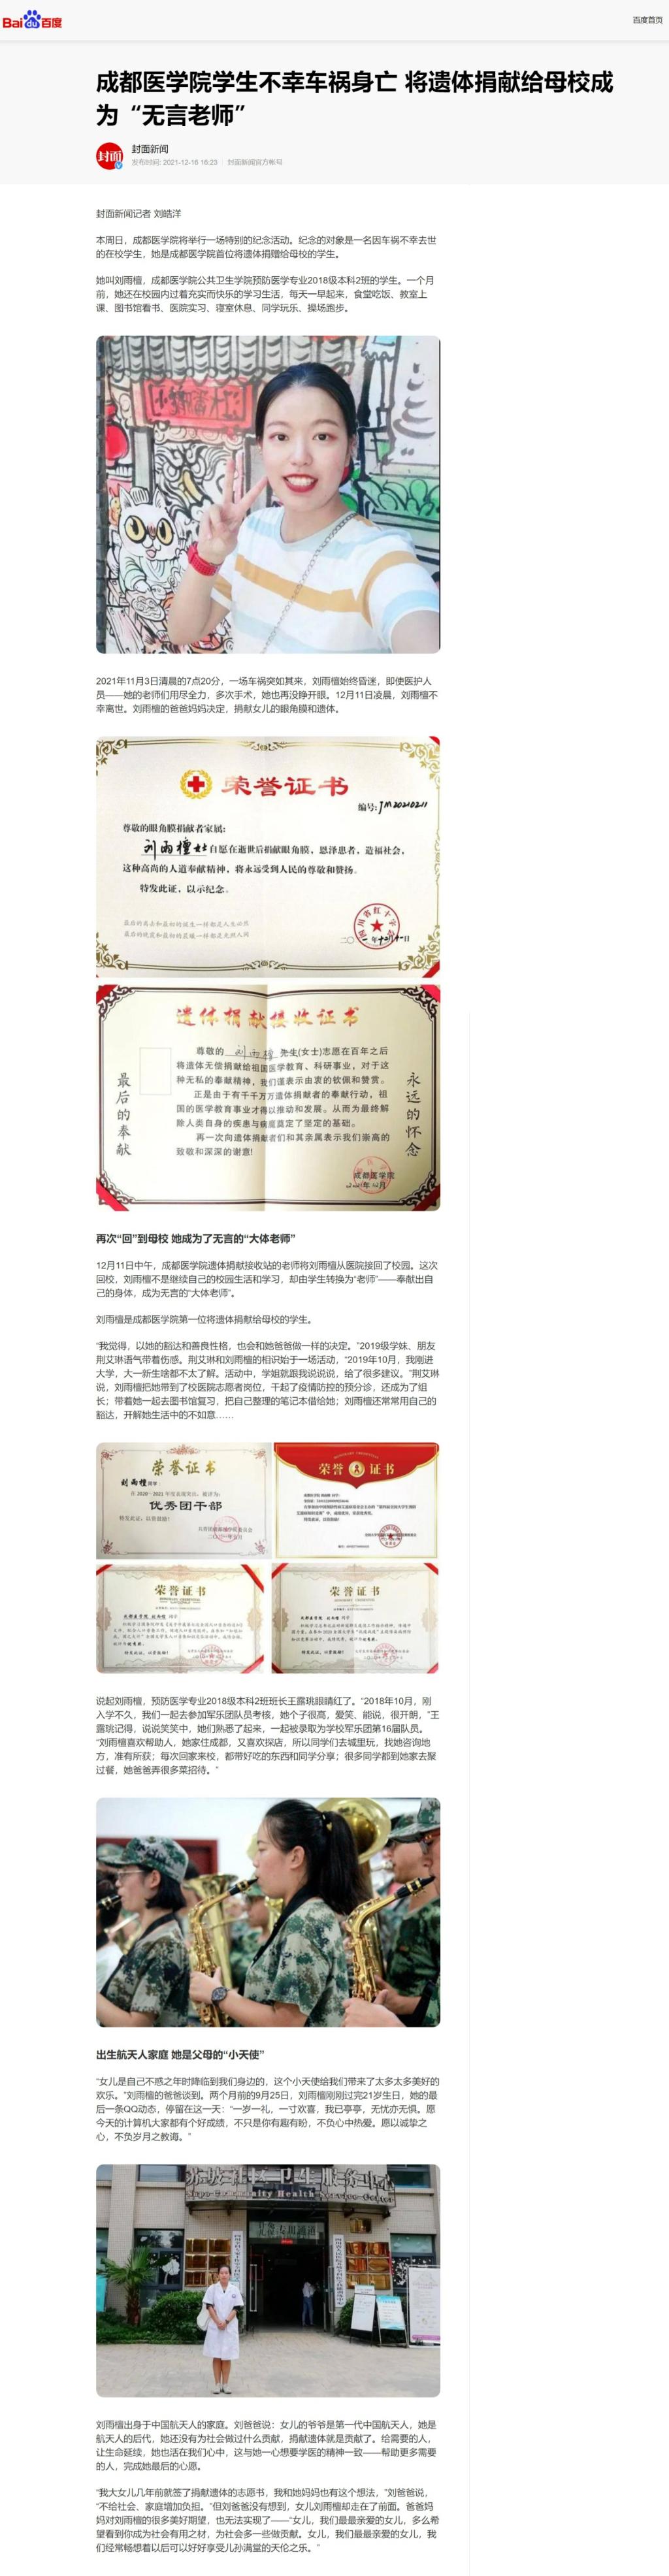 Bai du 百度
百度首页
成都医学院学生不幸车祸身亡 将遗体捐献给母校成
为“无言老师”
封面
封面新闻
发布时间: 2021-12-16 16:23 封面新闻官方帐号
封面新闻记者 刘皓洋
本周日，成都医学院将举行一场特别的纪念活动。纪念的对象是一名因车祸不幸去世
的在校学生，她是成都医学院首位将遗体捐赠给母校的学生。
她叫刘雨檀，成都医学院公共卫生学院预防医学专业2018级本科2班的学生。一个月
前，她还在校园内过着充实而快乐的学习生活，每天一早起来，食堂吃饭、教室上
课、图书馆看书、医院实习、寝室休息、同学玩乐、操场跑步。
2021年11月3日清晨的7点20分，一场车祸突如其来，刘雨檀始终昏迷，即使医护人
员——她的老师们用尽全力，多次手术，她也再没睁开眼。12月11日凌晨，刘雨檀不
幸离世。刘雨檀的爸爸妈妈决定，捐献女儿的眼角膜和遗体。
荣誉证书
编号:JM20210211
尊敬的眼角膜捐献者家属:
刘雨檀女士自愿在逝世后捐献眼角膜，恩泽患者，造福社会，
这种高尚的人道奉献精神，将永远受到人民的尊敬和赞扬.
特发此证，以示纪念.
遗体捐献接收证书
尊敬的 刘雨檀 先生(女士)志愿在百年之后
将遗体无偿捐献给祖国医学教育、科研事业，对于这
种无私的奉献精神，我们谨表示由衷的钦佩和赞赏。
正是由于有千千万万遗体捐献者的奉献行动，祖
国的医学教育事业才得以推动和发展。从而为最终解
除人类自身的疾患与病魔奠定了坚定的基础。
再一次向遗体捐献者们和其亲属表示我们崇高的
致敬和深深的谢意!
最后的奉献
永远的怀念
成都医学院
再次“回”到母校 她成为了无言的“大体老师”
12月11日中午，成都医学院遗体捐献接收站的老师将刘雨檀从医院接回了校园。这次
回校，刘雨檀不是继续自己的校园生活和学习，却由学生转换为“老师”——奉献出自
己的身体，成为无言的“大体老师”。
刘雨檀是成都医学院第一位将遗体捐献给母校的学生。
“我觉得，以她的豁达和善良性格，也会和她爸爸做一样的决定。”2019级学妹、朋友
荆艾琳语气带着伤感。荆艾琳和刘雨檀的相识始于一场活动，“2019年10月，我刚进
大学，大一新生啥都不太了解。活动中，学姐就跟我说说说，给了很多建议。”荆艾琳
说，刘雨檀把她带到了校医院志愿者岗位，干起了疫情防控的预分诊，还成为了组
长；带着她一起去图书馆复习，把自己整理的笔记本借给她；刘雨檀还常常用自己的
豁达，开解她生活中的不如意……
荣誉证书
刘雨檀
优秀团干部
荣誉 证书
荣誉证书
荣誉证书
说起刘雨檀，预防医学专业2018级本科2班班长王露珧眼睛红了。“2018年10月，刚
入学不久，我们一起去参加军乐团队员考核，她个子很高，爱笑、能说，很开朗，”王
露珧记得，说说笑笑中，她们熟悉了起来，一起被录取为学校军乐团第16届队员。
“刘雨檀喜欢帮助人，她家住成都，又喜欢探店，所以同学们去城里玩，找她咨询地
方，准有所获；每次回家来校，都带好吃的东西和同学分享；很多同学都到她家去聚
过餐，她爸爸弄很多菜招待。”
出生航天人家庭 她是父母的“小天使”
“女儿是自己不惑之年时降临到我们身边的，这个小天使给我们带来了太多太多美好的
欢乐。”刘雨檀的爸爸谈到。两个月前的9月25日，刘雨檀刚刚过完21岁生日，她的最
后一条QQ动态，停留在这一天：“一岁一礼，一寸欢喜，我已亭亭，无忧亦无惧。愿
今天的计算机大家都有个好成绩，不只是你有趣有盼，不负心中热爱。愿以诚挚之
心，不负岁月之教诲。”
苏坡社区卫生服务中心
Supo Community Health Service Center
刘雨檀出身于中国航天人的家庭。刘爸爸说：女儿的爷爷是第一代中国航天人，她是
航天人的后代，她还没有为社会做过什么贡献，捐献遗体就是贡献了。给需要的人，
让生命延续，她也活在我们心中，这与她一心想要学医的精神一致——帮助更多需要
的人，完成她最后的心愿。
“我大女儿几年前就签了捐献遗体的志愿书，我和她妈妈也有这个想法，”刘爸爸说，
“不给社会、家庭增加负担。”但刘爸爸没有想到，女儿刘雨檀却走在了前面。爸爸妈
妈对刘雨檀的很多美好期望，也无法实现了——“女儿，我们最最亲爱的女儿，多么希
望看到你成为社会有用之材，为社会多一些做贡献。女儿，我们最最亲爱的女儿，我
们经常畅想着以后可以好好享受儿孙满堂的天伦之乐。”